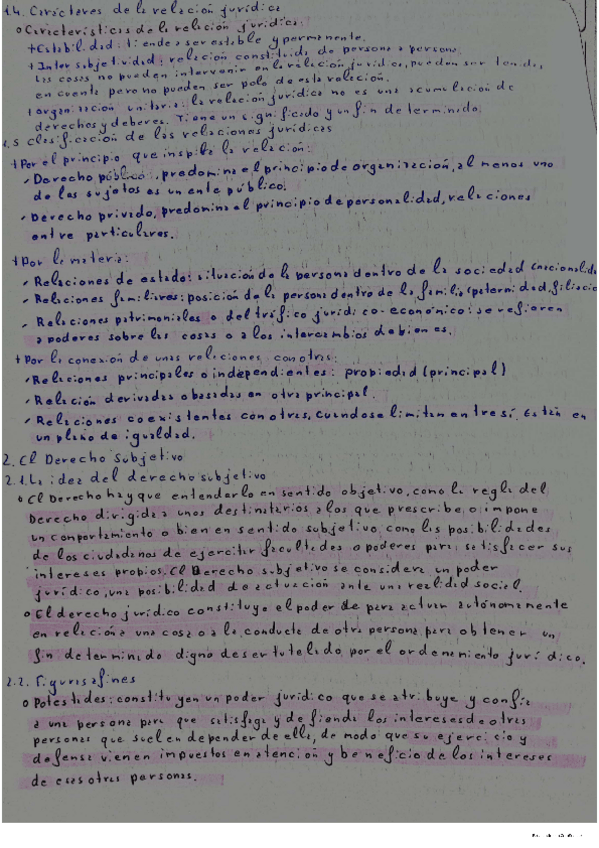 1.4. Carácteres de la relación jurídica
o Características de la relación jurídica:
+ Estabilidad: tiende a ser estable y permanente.
+ Intersubjetividad: relación constituida de persona a persona.
Las cosas no pueden intervenir en la relación jurídica, pueden ser tenidas
en cuenta pero no pueden ser polo de esta relación.
+ organización unitaria: la relación jurídica no es una acumulación de
derechos y deberes. Tiene un significado y un fin determinado.
1.5 Clasificación de las relaciones jurídicas
+ Por el principio que inspira la relación:
- Derecho público: predomina el principio de organización, al menos uno
de los sujetos es un ente público.
- Derecho privado, predomina el principio de personalidad, relaciones
entre particulares.
+ Por la materia:
- Relaciones de estado: situación de la persona dentro de la sociedad (nacionalida
- Relaciones familiares: posición de la persona dentro de la familia (paternidad, filiació
- Relaciones patrimoniales o del tráfico jurídico-económico: se refieren
a poderes sobre las cosas o a los intercambios de bienes.
+ Por la conexión de unas relaciones con otras:
- Relaciones principales o independientes: propiedad (principal)
- Relación derivadas o basadas en otra principal.
- Relaciones coexistentes con otras, cuando se limitan entre sí. Están en
un plano de igualdad.
2. El Derecho Subjetivo
2.1. La idea del derecho subjetivo
o El Derecho hay que entenderlo en sentido objetivo, como la regla del
Derecho dirigida a unos destinatarios a los que prescribe o impone
un comportamiento o bien en sentido subjetivo, como las posibilidades
de los ciudadanos de ejercitar facultades o poderes para satisfacer sus
intereses propios. El Derecho subjetivo se considera un poder
jurídico, una posibilidad de actuación ante una realidad social.
o El derecho jurídico constituye el poder de para actuar autónomamente
en relación a una cosa o a la conducta de otra persona para obtener un
fin determinado digno de ser tutelado por el ordenamiento jurídico.
2.2. Figuras afines
o Potestades: constituyen un poder jurídico que se atribuye y confía
a una persona para que satisfaga y defienda los intereses de otras
personas que suelen depender de ella, de modo que su ejercicio y
defensa vienen impuestos en atención y beneficio de los intereses
de esas otras personas.